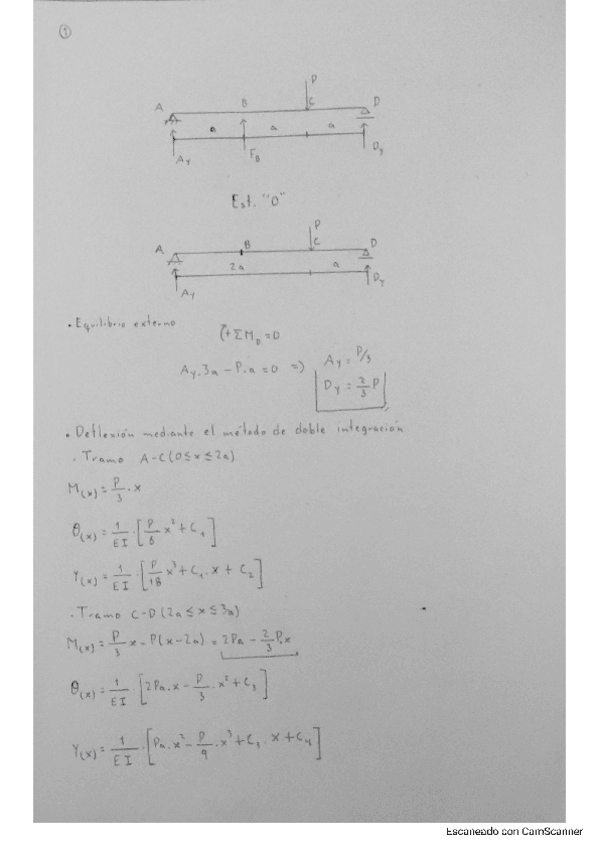 1
P
A B C D
a a a
Ay FB Dy
Est. "0"
P
A B C D
2a a
Ay Dy
• Equilibrio externo
(+ ΣM_D = 0
Ay.3a - P.a = 0 => Ay = P/3
Dy = 2/3 P
• Deflexión mediante el método de doble integración
. Tramo A-C (0≤x≤2a)
M(x) = P/3 . x
θ(x) = 1/EI . [P/6 x² + C₁]
Y(x) = 1/EI . [P/18 x³ + C₁.x + C₂]
. Tramo C-D (2a≤x≤3a)
M(x) = P/3 x - P(x-2a) = 2Pa - 2/3 P.x
θ(x) = 1/EI . [2Pa.x - P/3 . x² + C₃]
Y(x) = 1/EI . [Pa.x² - P/9 . x³ + C₃. x + C₄]
Escaneado con CamScanner